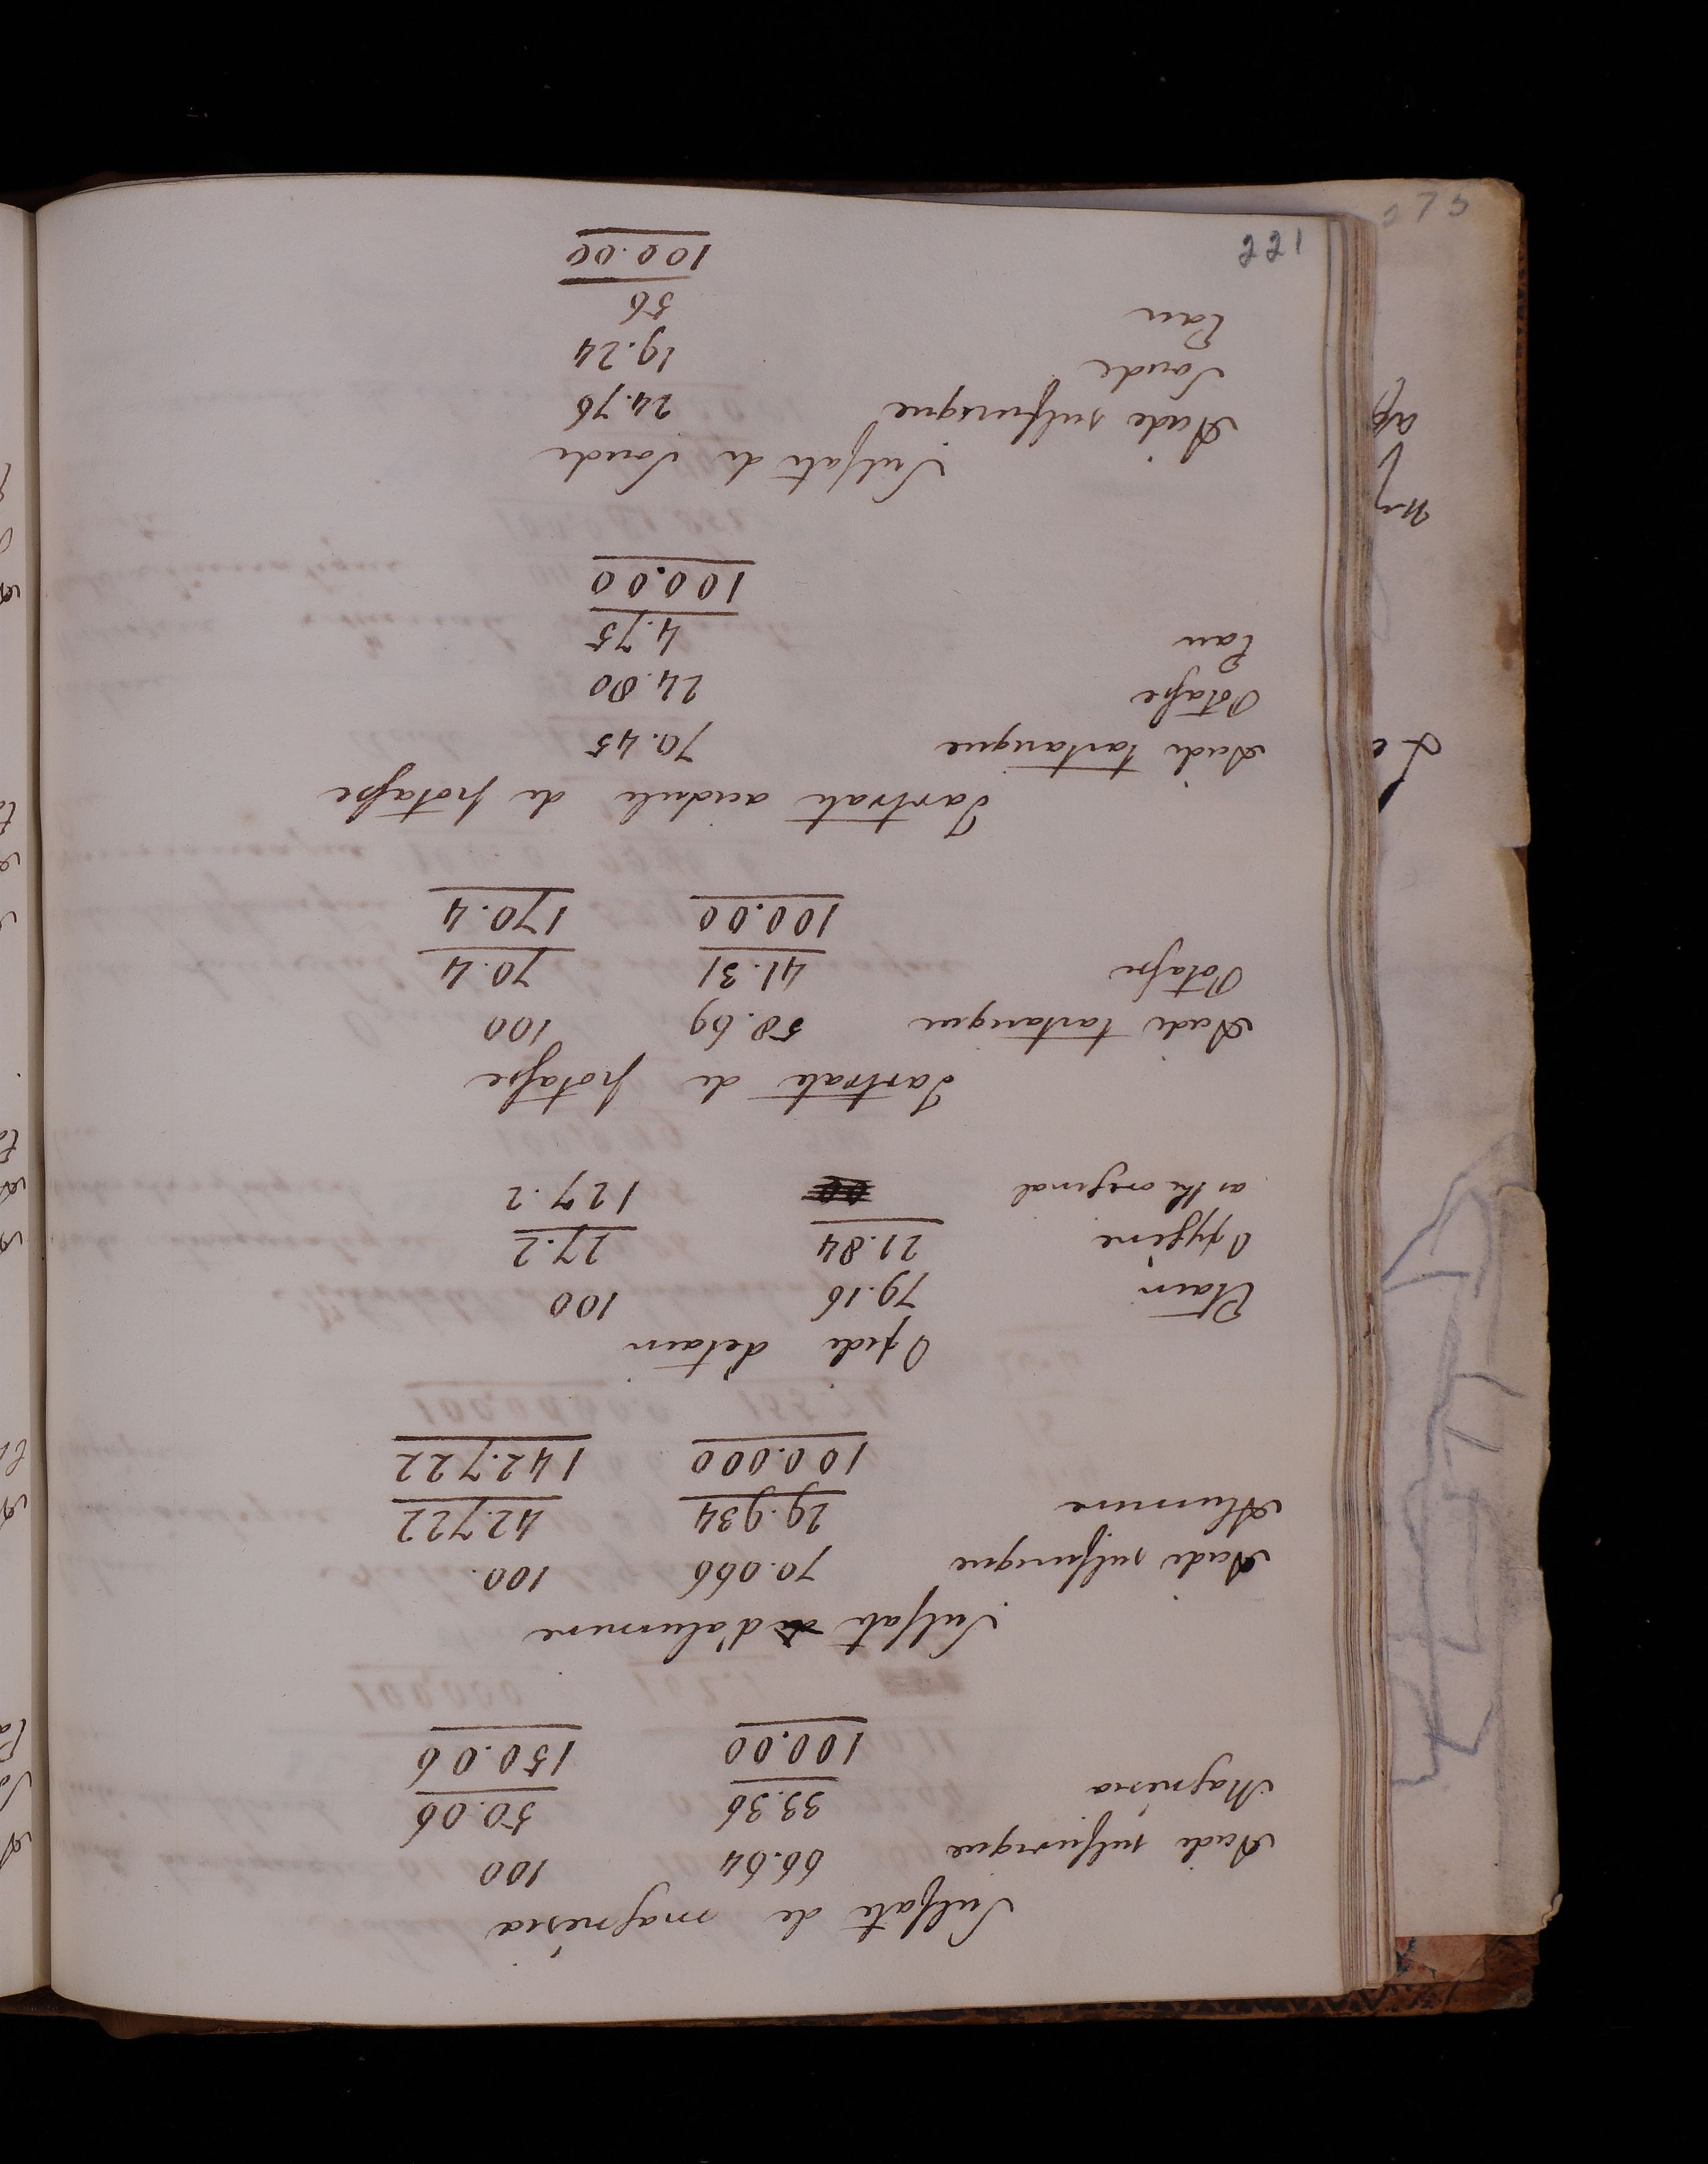 Sulfate de magnésia
Acide sulfurique 66.64 100
Magnésia 33.36 50.06
100.00 150.06
Sulfate d'alumine
Acide sulfurique 70.066 100.
Alumine 29.934 42.722
100.000 142.722
Oxide d'etain
Etain 79.16 100
Oxygène 21.84 27.2
as the original 127.2
Tartrate de potasse
Acide tartarique 58.69 100
Potasse 41.31 70.4
100.00 170.4
Tartrate acidule de potasse
Acide tartarique 70.45
Potasse 24.80
Eau 4.75
100.00
Sulfate de Soude
Acide sulfurique 24.76
Soude 19.24
Eau 56
100.00
221
273